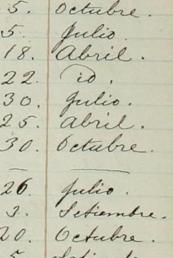 5. Octubre.
5. Julio.
18. Abril.
22. id.
30. Julio.
25. Abril.
30. Octubre.
26. Julio.
3. Setiembre.
20. Octubre.